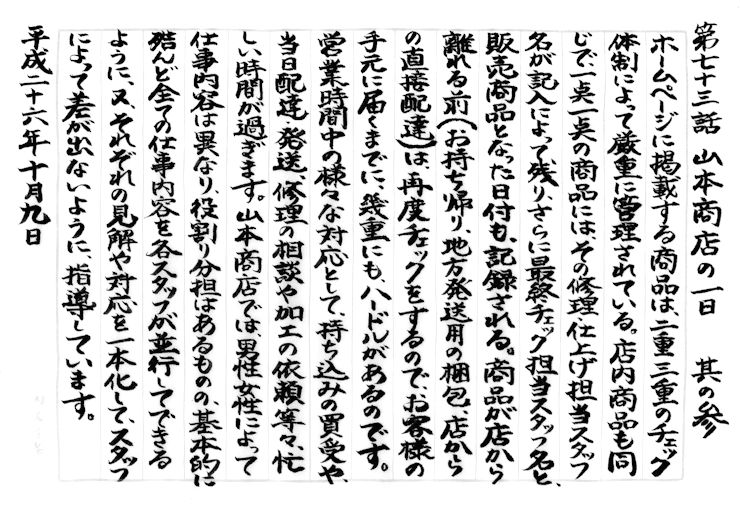 第七十三話 山本商店の一日 其の参
ホームページに掲載する商品は、二重三重のチェック
体制によって厳重に管理されている。店内商品も同
じで、一点一点の商品には、その修理仕上げ担当スタッフ
名が記入によって残り、さらに最終チェック担当スタッフ名と、
販売商品となった日付も、記録される。商品が店から
離れる前(お持ち帰り、地方発送用の梱包、店から
の直接配達)は、再度チェックをするので、お客様の
手元に届くまでに、幾重にも、ハードルがあるのです。
営業時間中の様々な対応として、持ち込みの買受や、
当日配達、発送、修理の相談や加工の依頼等々、忙
しい時間が過ぎます。山本商店では、男性女性によって
仕事内容は異なり、役割り分担はあるものの、基本的に
殆んど全ての仕事内容を各スタッフが並行してできる
ように、又、それぞれの見解や対応を一本化して、スタッフ
によって差が出ないように、指導しています。
平成二十六年十月九日